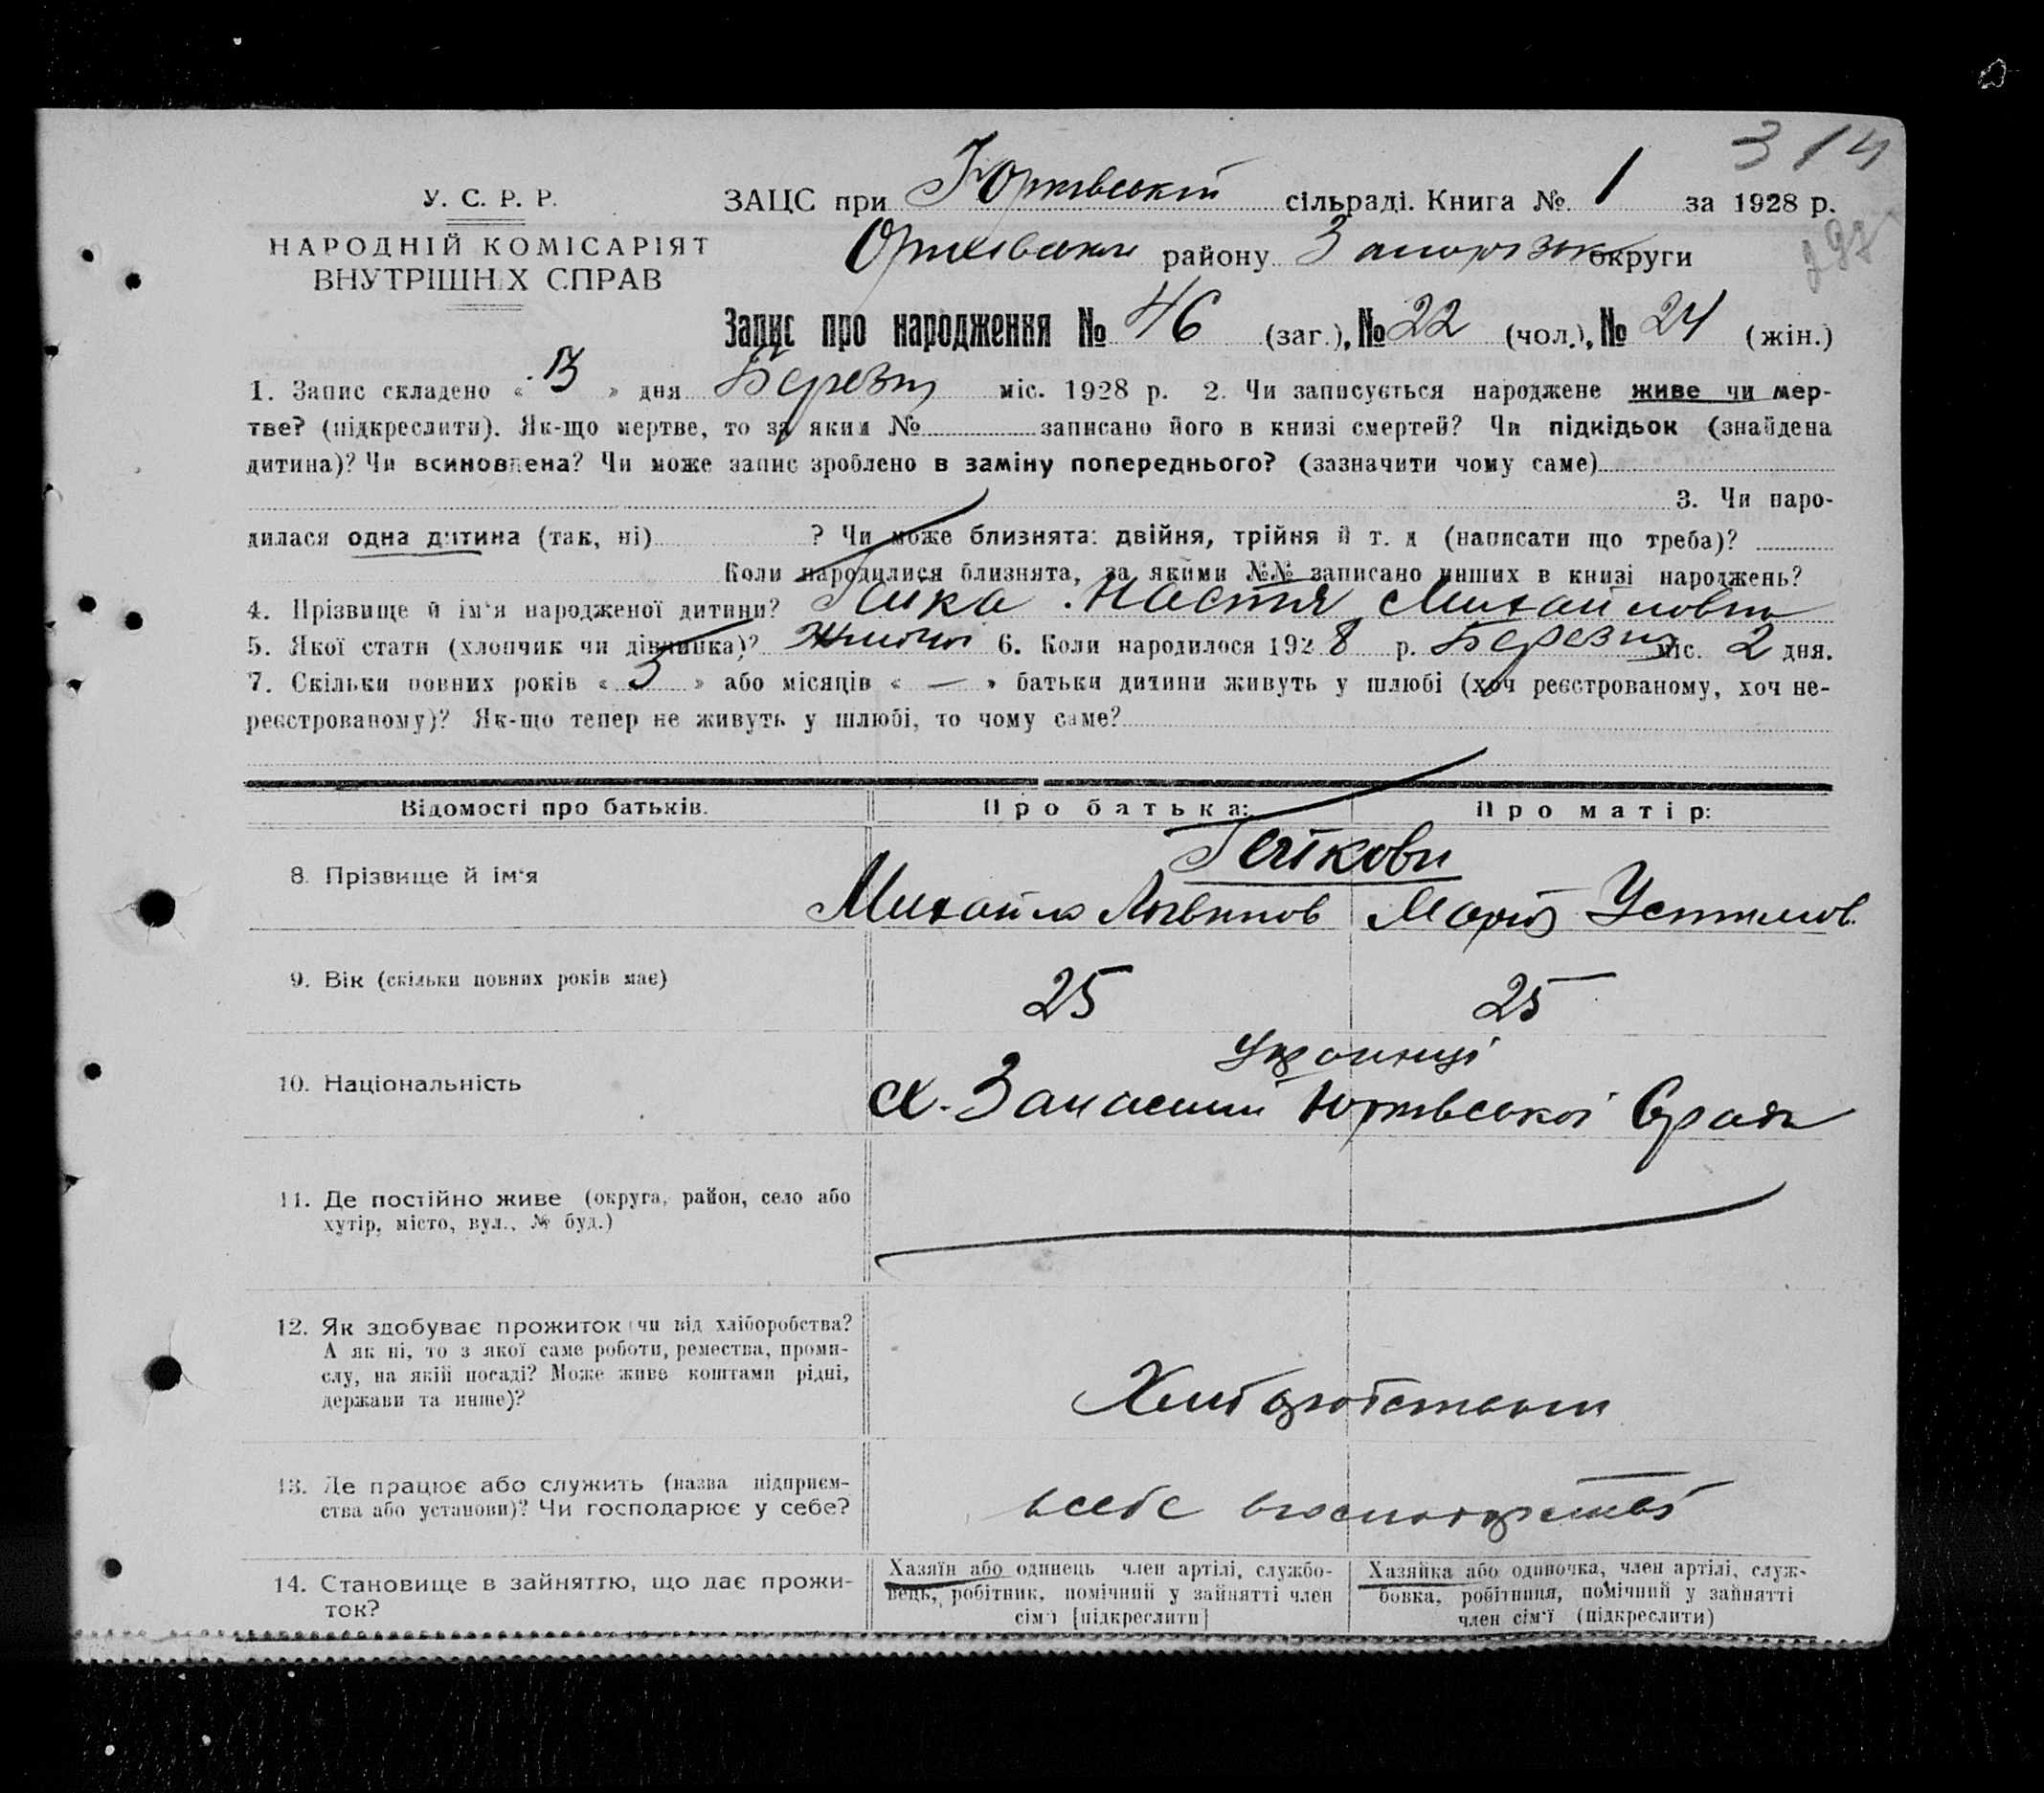 314
У. С. Р. Р.
ЗАЦС при Юрківській сільраді. Книга № 1 за 1928 р.
НАРОДНІЙ КОМІСАРІЯТ
ВНУТРІШНІХ СПРАВ
району округи
Запис про народження № 46 (заг.), № 22 (чол.), № 24 (жін.)
1. Запис складено « » дня Березня міс. 1928 р. 2. Чи записується народжене живе чи мер-
тве? (підкреслити). Як-що мертве, то за яким № записано його в книзі смертей? Чи підкідьок (знайдена
дитина)? Чи всиновлена? Чи може запис зроблено в заміну попереднього? (зазначити чому саме)
3. Чи наро-
дилася одна дитина (так, ні) ? Чи може близнята: двійня, трійня й т. д (написати що треба)?
Коли народилися близнята, за якими №№ записано инших в книзі народжень?
4. Прізвище й ім'я народженої дитини? Гейка Настя Михайловна
5. Якої стати (хлопчик чи дівчинка)? 6. Коли народилося 1928 р. Березня міс. 2 дня.
7. Скільки повних років « 3 » або місяців « — » батьки дитини живуть у шлюбі (хоч реєстрованому, хоч не-
реєстрованому)? Як-що тепер не живуть у шлюбі, то чому саме?
Відомості про батьків. Про батька: Про матір:
Гейкови
8. Прізвище й ім'я Михайло Логвинов Марія Устимов.
9. Вік (скільки повних років має) 25 25
Українці
10. Національність х. Запасний Юрківської Сради
11. Де постійно живе (округа, район, село або
хутір, місто, вул., № буд.)
12. Як здобуває прожиток (чи від хліборобства?
А як ні, то з якої саме роботи, ремества, проми-
слу, на якій посаді? Може живе коштами рідні,
держави та инше)?
Хліборобством
13. Де працює або служить (назва підприєм-
ства або установи)? Чи господарює у себе?
всебе вгосподарстві
14. Становище в зайняттю, що дає прожи-
ток?
Хазяїн або одинець член артілі, службо-
вець, робітник, помічний у зайнятті член
сім'ї [підкреслити]
Хазяйка або одиночка, член артілі, служ-
бовка, робітниця, помічний у зайнятті
член сім'ї (підкреслити)